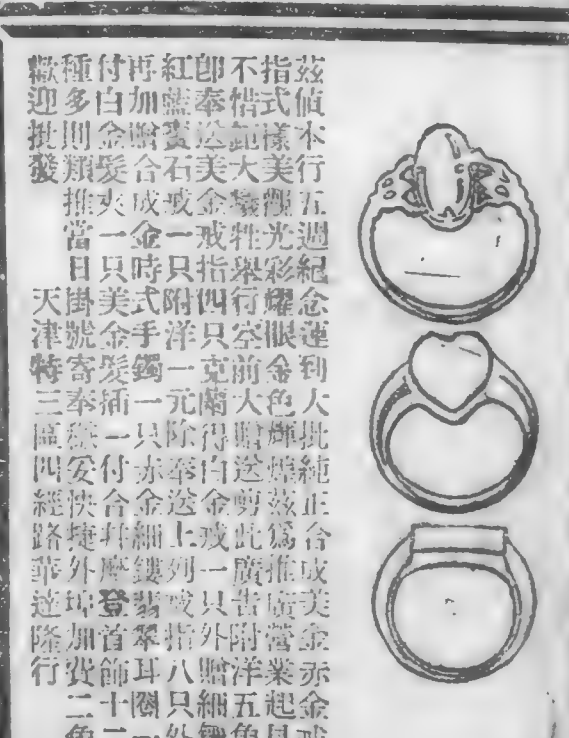 茲值本行五週紀念運到大批純正合成美金赤金戒
指式樣美觀光彩耀眼金色輝煌茲爲推廣營業起見
不惜鉅大犧牲舉行空前大贈送剪此廣告附洋五角
卽奉送美金戒指四只克蘭得白金戒一只外贈細鏤
紅藍寶石戒一只附洋一元除奉送上列戒指八只外
再加贈合成金時式手鐲一只赤金細鏤翡翠耳圈一
付白金髮夾一只美金髮插一付合共摩登首飾十二
種多則類推當日掛號寄奉穩妥快捷外埠加費二角
歡迎批發 天津特三區四經路華達隆行